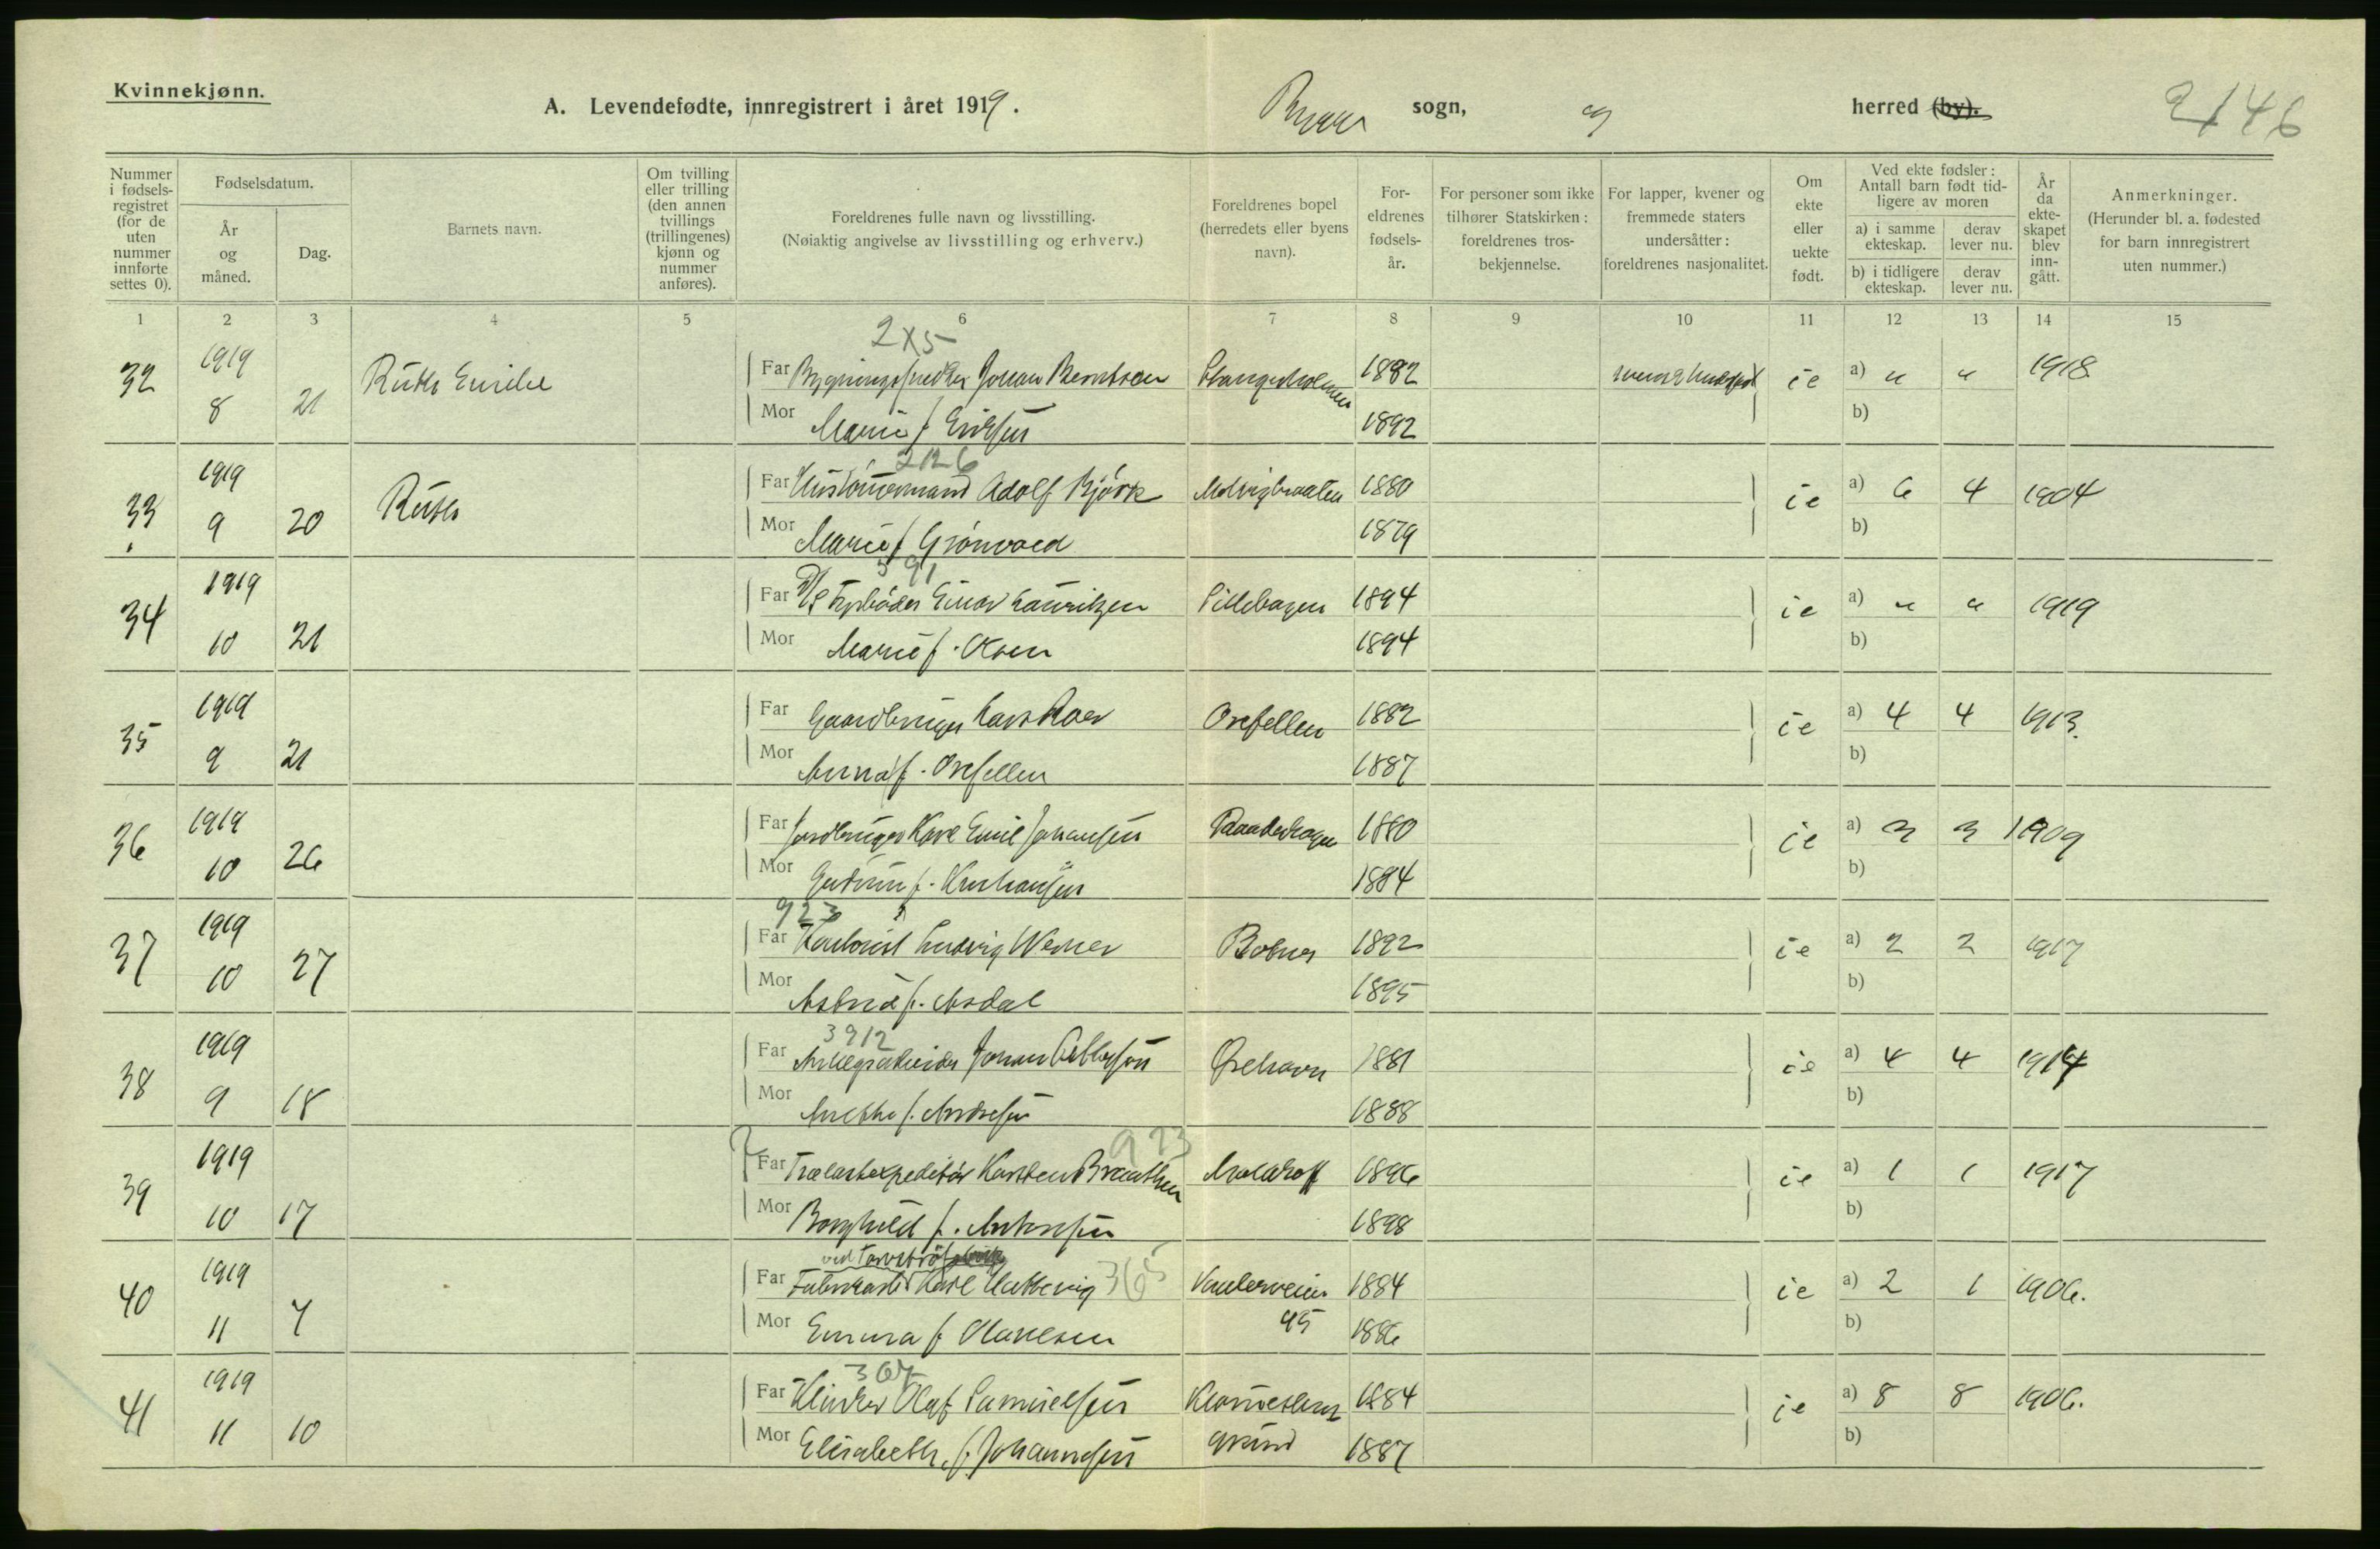 Kvinnekjønn.
A. Levendefødte, innregistrert i året 1919. Rygge sogn, herred (by). 2146
Nummer i fødselsregistret (for de uten nummer innførte settes 0).
Fødselsdatum.
År og måned.
Dag.
Barnets navn.
Om tvilling eller trilling (den annen tvillings (trillingenes) kjønn og nummer anføres).
Foreldrenes fulle navn og livsstilling.
(Nøiaktig angivelse av livsstilling og erhverv.)
Foreldrenes bopel (herredets eller byens navn).
Foreldrenes fødselsår.
For personer som ikke tilhører Statskirken: foreldrenes trosbekjennelse.
For lapper, kvener og fremmede staters undersåtter: foreldrenes nasjonalitet.
Om ekte eller uekte født.
Ved ekte fødsler: Antall barn født tidligere av moren
a) i samme ekteskap.
derav lever nu.
b) i tidligere ekteskap.
derav lever nu.
År da ekteskapet blev inngått.
Anmerkninger.
(Herunder bl. a. fødested for barn innregistrert uten nummer.)
1 2 3 4 5 6 7 8 9 10 11 12 13 14 15
2x5
32 1919 Ruth Emilie Far Johan Berntsen 1882 ie a) " " 1918
8 21 Mor Marie f. Eriksen 1892 b)
2126
33 1919 Ruth Far Adolf Bjørk 1880 ie a) 6 4 1904
9 20 Mor Marie f. Grønvold 1879 b)
391
34 1919 Far Fyrbøder Einar Lauritzen 1894 ie a) " " 1919
10 21 Mor Marie f. Olsen 1894 b)
35 1919 Far Gaardbruger Lars Roer Orefellen 1882 ie a) 4 4 1913
9 21 Mor Anna f. Orefellen 1887 b)
36 1919 Far Jordbruger Karl Emil Johansen 1880 ie a) 3 3 1909
10 26 Mor Gudrun f. Kristiansen 1884 b)
923
37 1919 Far Kontorist Ludvig Werner Botner 1892 ie a) 2 2 1917
10 27 Mor Astrid f. Asdal 1895 b)
3912
38 1919 Far Anlægsarbeider Johan Orehavn 1881 ie a) 4 4 1914
9 18 Mor Anethe f. Andresen 1888 b)
923
39 1919 Far Trælastexpeditør Karsten Braathen 1896 ie a) 1 1 1917
10 17 Mor Borghild f. Antonsen 1898 b)
40 1919 Far Karl Hattevig 365 Vanlerveien 1884 ie a) 2 1 1906.
11 7 Mor Emma f. 95 1886 b)
367
41 1919 Far Olaf Samuelsen 1884 ie a) 8 8 1906.
11 10 Mor Elisabeth f. Johannesen grund 1887 b)